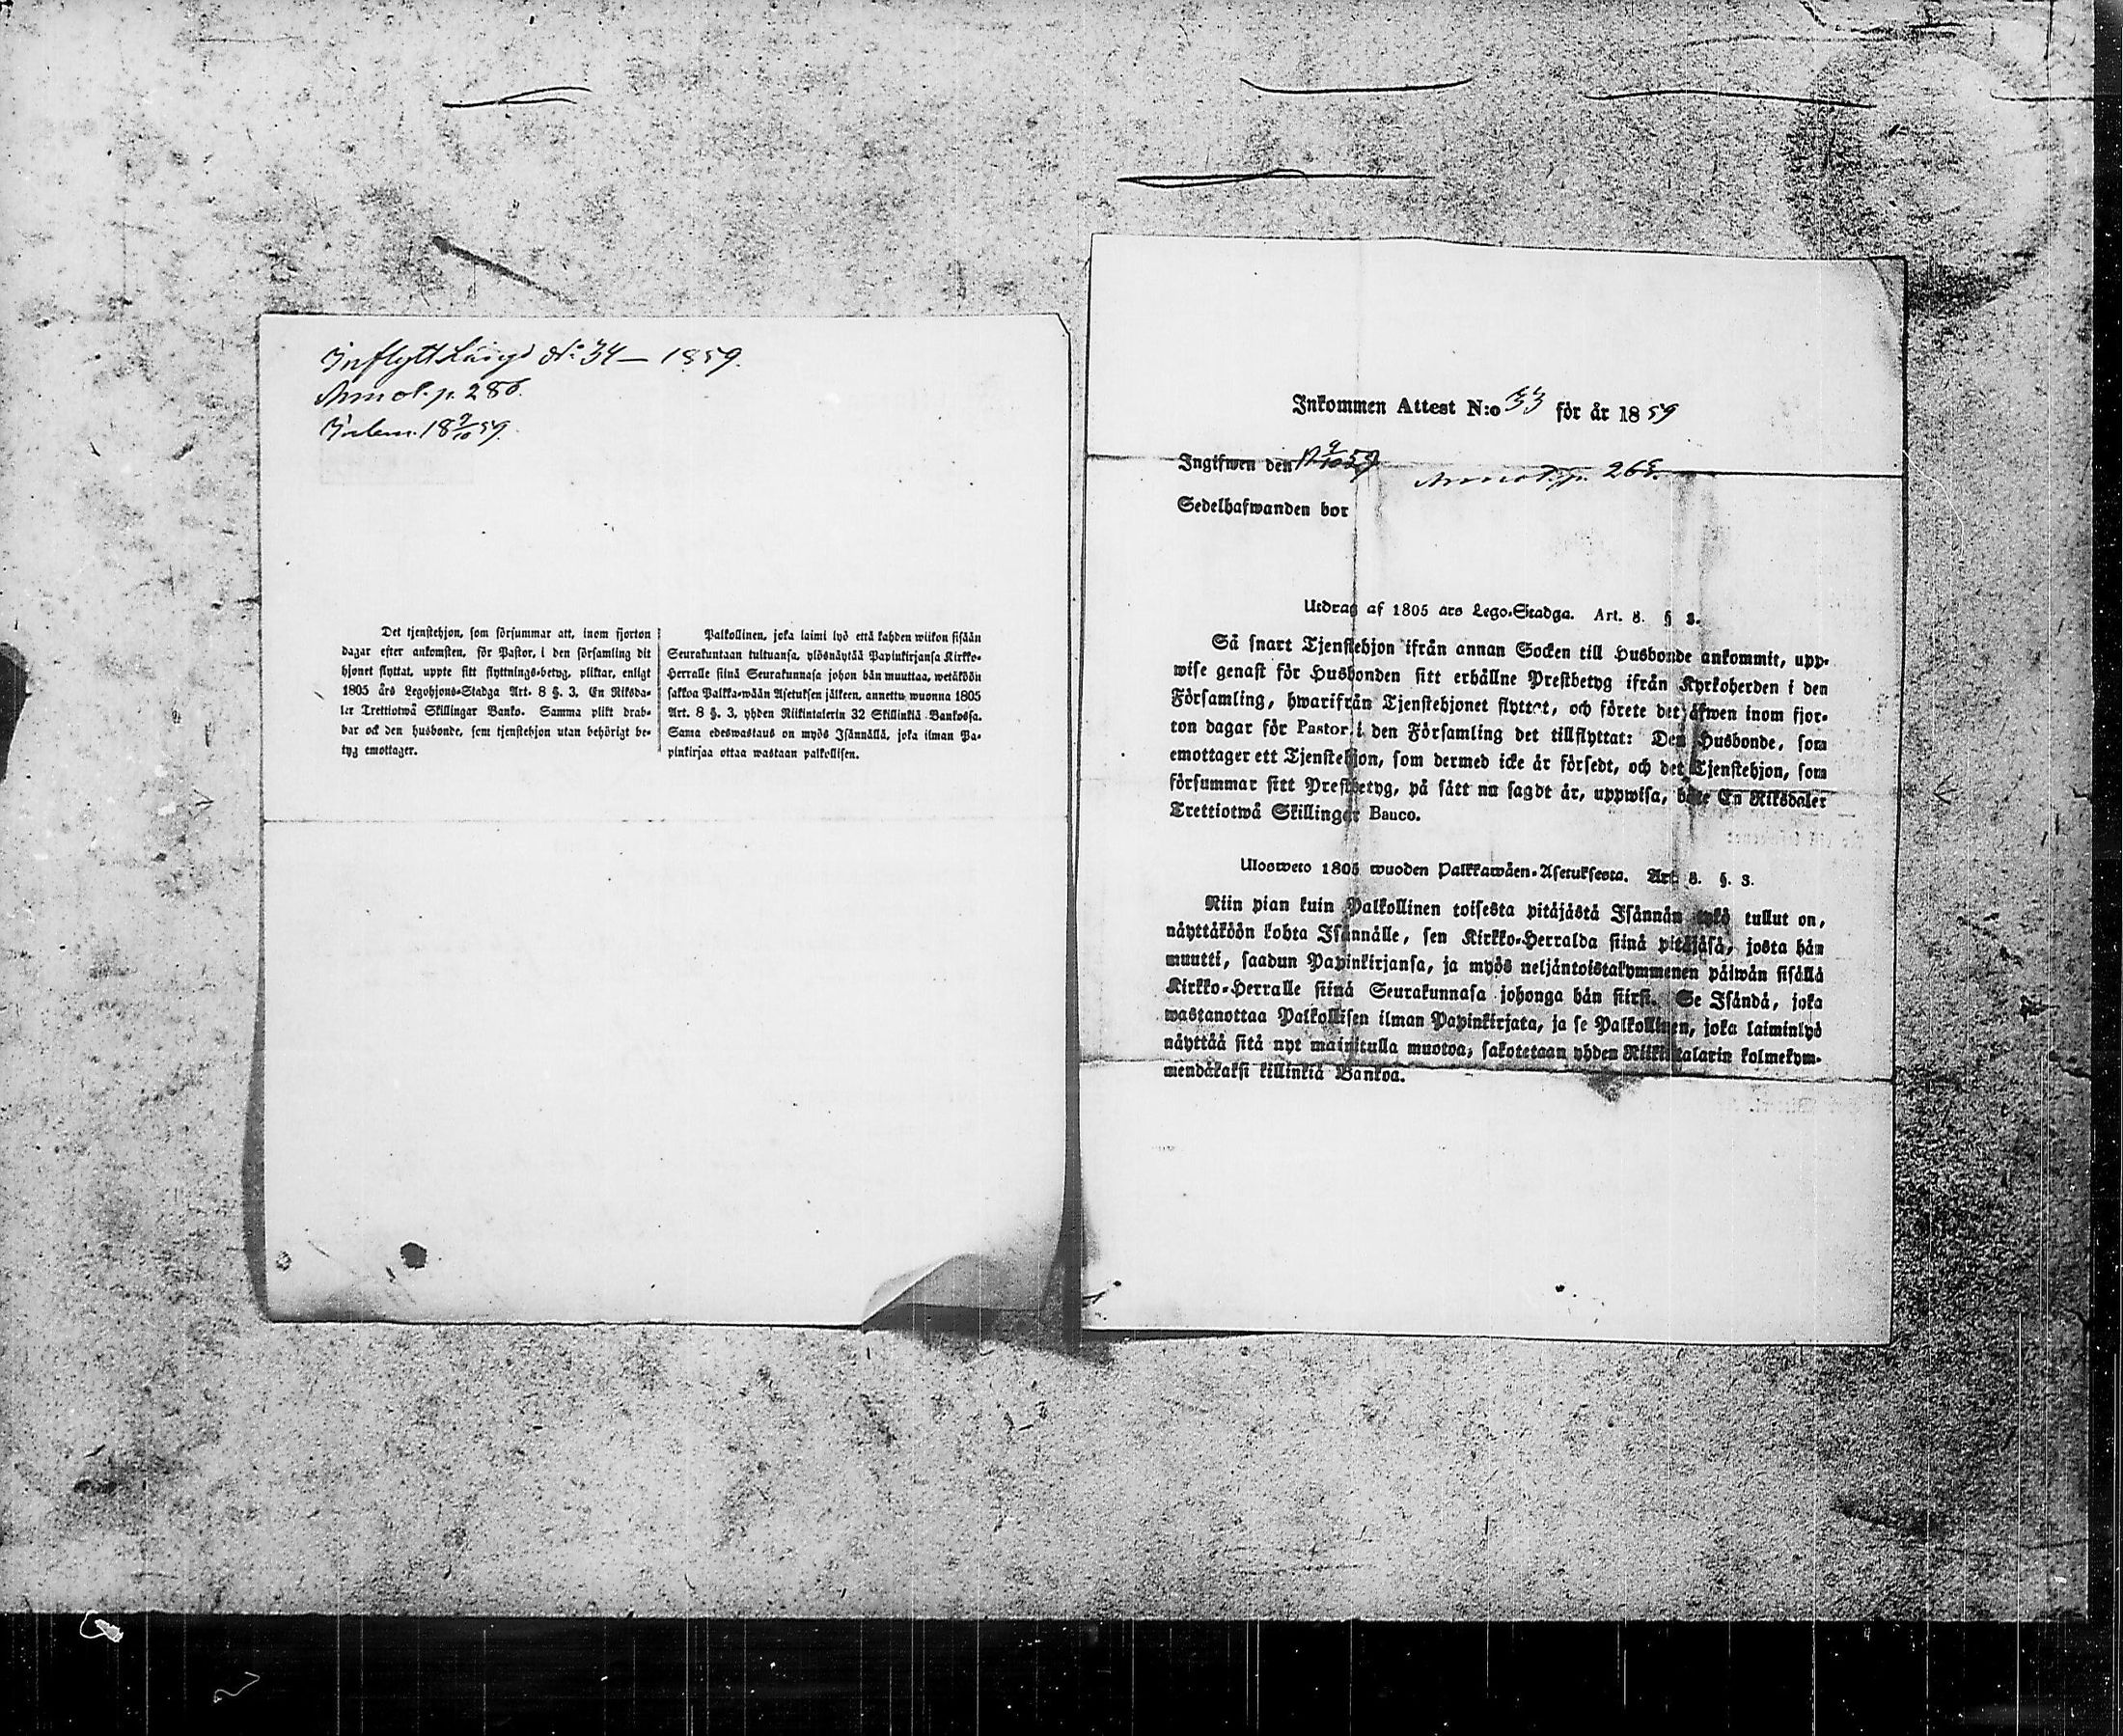 Inflytt Längd No 34 — 1859.
Annot. p. 286.
Inlem. 18 9/10 59.
Det tjenstehjon, som försummar att, inom fjorton
dagar efter ankomsten, för Pastor, i den församling dit
hjonet flyttat, uppte sitt flyttnings-betyg, pliktar, enligt
1805 års Legohjons-Stadga Art. 8 §. 3, En Riksda-
ler Trettiotwå Skillingar Banko. Samma plikt drab-
bar ock den husbonde, som tjenstehjon utan behörigt be-
tyg emottager.
Palkollinen, joka laimi lyö että kahden wiikon sisään
Seurakuntaan tultuansa, ylösnäytää Papinkirjansa Kirkko-
Herralle siinä Seurakunnasa johon hän muuttaa, wetäköön
sakkoa Palkka-wään Asetuksen jälkeen, annettu wuonna 1805
Art. 8 §. 3, yhden Riikintalerin 32 Skillinkiä Bankossa.
Sama edeswastaus on myös Isännällä, joka ilman Pa-
pinkirjaa ottaa wastaan palkollisen.
Inkommen Attest N:o 33 för år 1859
Ingifwen den 18 9/10 59
Annot. p. 265.
Sedelhafwanden bor
Utdrag af 1805 års Lego-Stadga. Art. 8. § 3.
Så snart Tjenstehjon ifrån annan Socken till Husbonde ankommit, upp-
wise genast för Husbonden sitt erhållne Prestbetyg ifrån Kyrkoherden i den
Församling, hwarifrån Tjenstehjonet flyttat, och förete det äfwen inom fjor-
ton dagar för Pastor i den Församling det tillflyttat: Den Husbonde, som
emottager ett Tjenstehjon, som dermed icke är försedt, och det Tjenstehjon, som
försummar sitt Prestbetyg, på sätt nu sagdt är, uppwisa, böte En Riksdaler
Trettiotwå Skillingar Banco.
Uloosweto 1805 wuoden Palkkawäen-Asetuksesta. Art. 8. §. 3.
Niin pian kuin Palkollinen toisesta pitäjästä Isännän tykö tullut on,
näyttäköön kohta Isännälle, sen Kirkko-Herralda siinä pitäjäsä, josta hän
muutti, saadun Papinkirjansa, ja myös neljäntoistakymmenen päiwän sisällä
Kirkko-Herralle siinä Seurakunnasa johonga hän siirsi. Se Isändä, joka
wastanottaa Palkollisen ilman Papinkirjata, ja se Palkollinen, joka laiminlyö
näyttää sitä nyt mainitulla muotoa, sakotetaan yhden Riikintalarin kolmekym-
mendäkaksi killinkiä Bankoa.